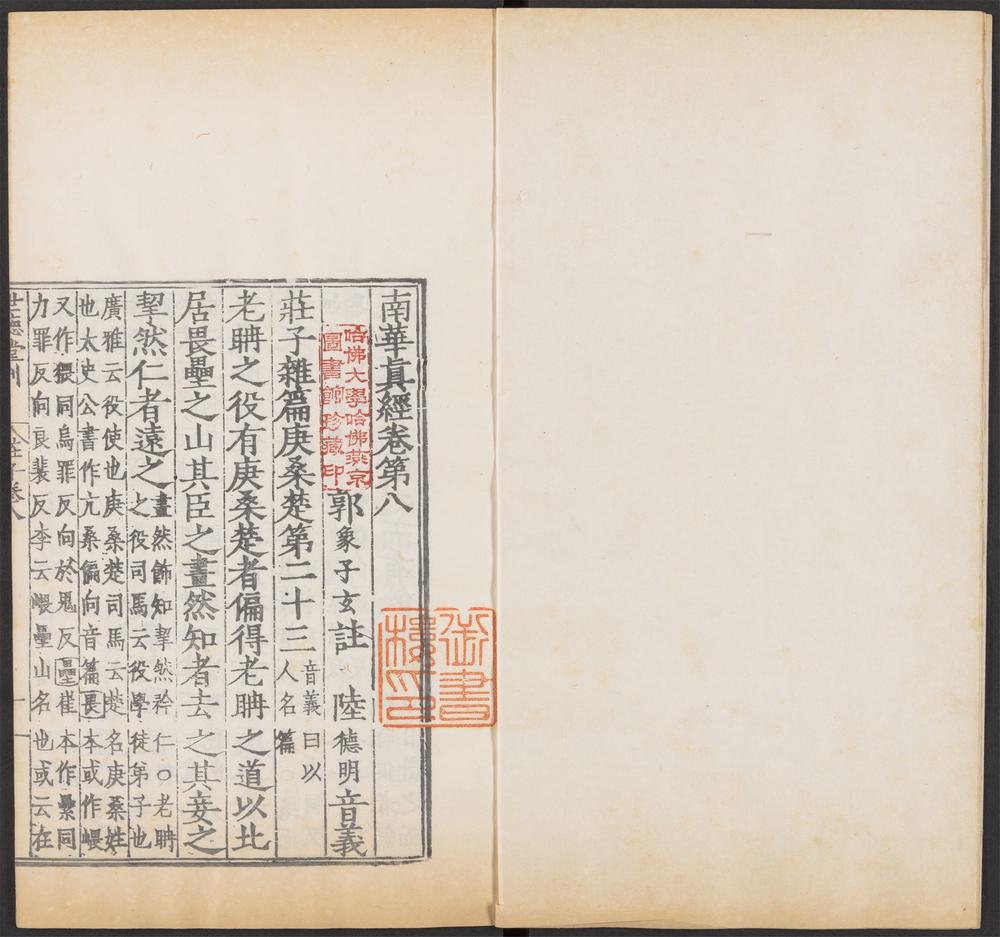 南華真經卷第八
郭象子玄註 陸德明音義
莊子雜篇庚桑楚第二十三 音義曰以人名篇
老聃之役有庚桑楚者偏得老聃之道以北
居畏壘之山其臣之畫然知者去之其妾之
挈然仁者遠之 畫然飾知挈然矜仁○老聃之役司馬云役學徒弟子也
廣雅云役使也庚桑楚司馬云楚名庚桑姓
也太史公書作亢桑偏向音篇畏本或作㟪
又作猥同烏罪反向於鬼反壘崔本作纍同
力罪反向良裴反李云㟪壘山名也或云在
世德堂刊 莊子卷八 一
哈佛大學哈佛燕京
圖書館珍藏印
御書
樓印